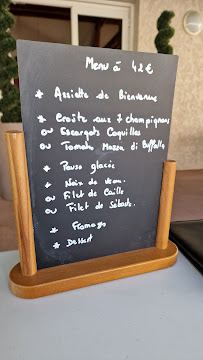 Menu à 42€
* Assiette de Bienvenue
* Croûte aux 7 champignons
ou Escargots Coquilles
ou Tomate Mozza di Buffala
* Pause glacée
* Noix de Veau.
ou Filet de Caille
ou Filet de Sébaste.
* Fromage
* Dessert